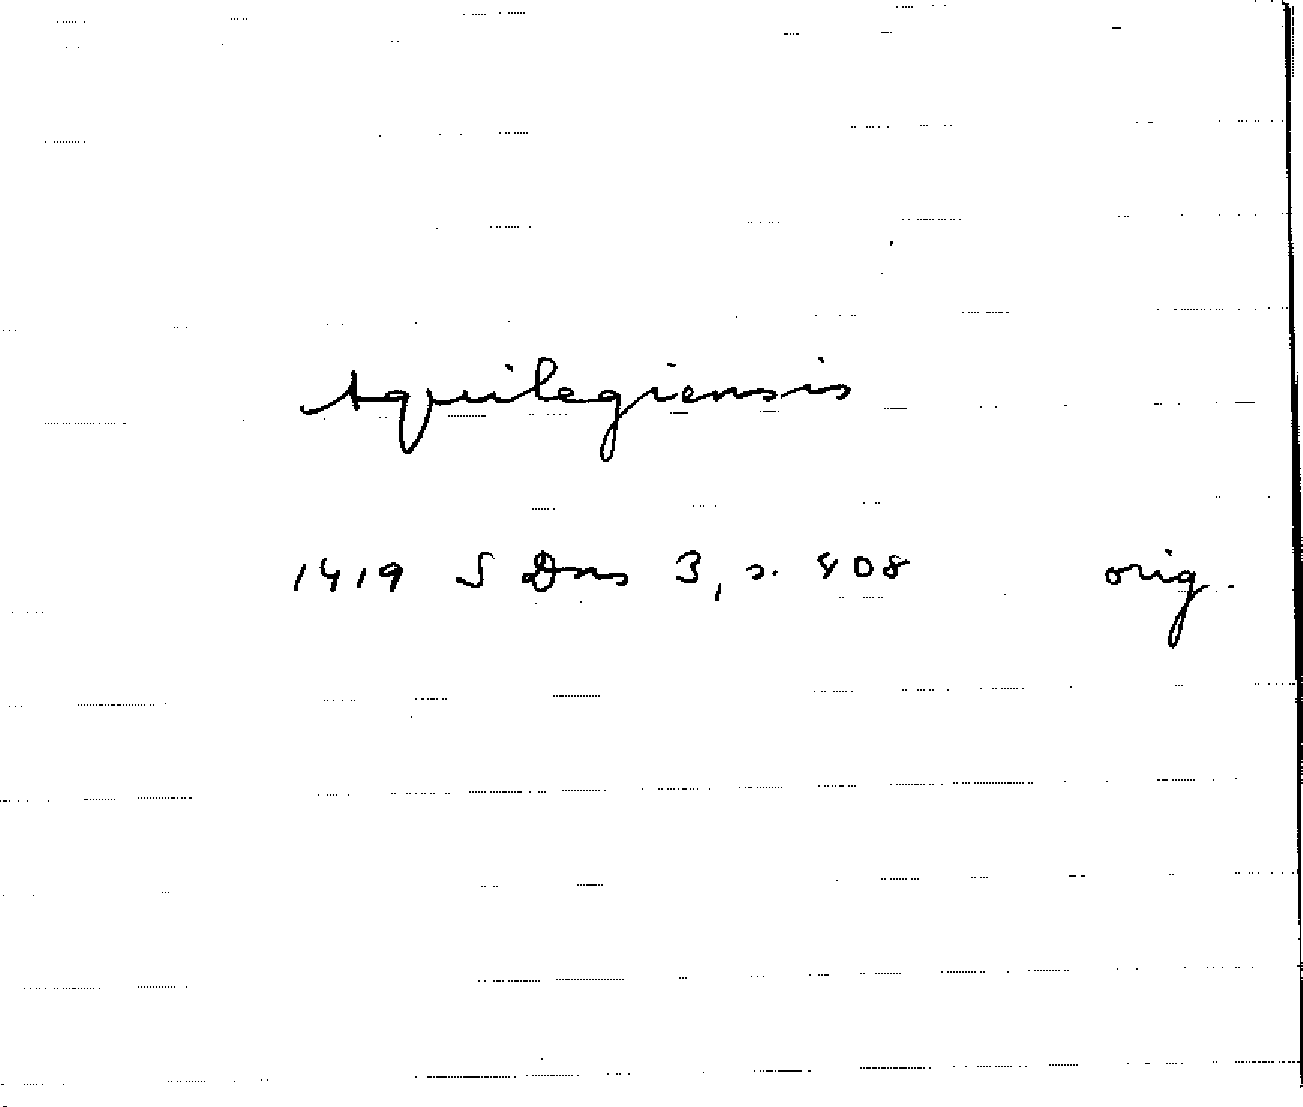 Aquilegiensis
1419 S Dns 3, s. 408 orig.